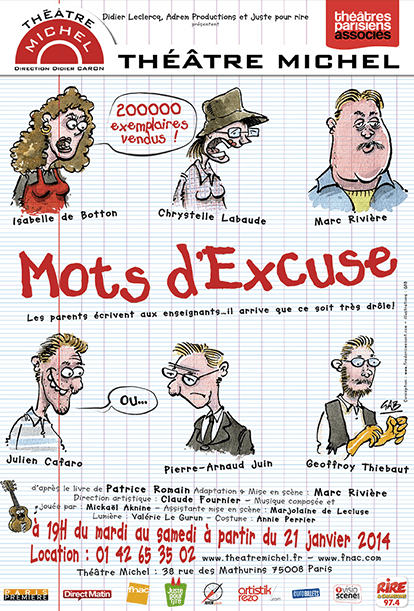 Didier Leclercq, Adrem Productions et Juste pour rire
présentent
THÉÂTRE
MICHEL
DIRECTION DIDIER CARON
théâtres
parisiens
associés
THÉÂTRE MICHEL
200000
exemplaires
vendus !
Isabelle de Botton
Chrystelle Labaude
Marc Rivière
Mots d'Excuse
Les parents écrivent aux enseignants...il arrive que ce soit très drôle!
OU...
GAB
Julien Cafaro
Pierre-Arnaud Juin
Geoffroy Thiebaut
d'après le livre de Patrice Romain Adaptation + Mise en scène : Marc Rivière
Direction artistique : Claude Fournier - Musique composée et
jouée par : Mickaël Aknine - Assistante mise en scène : Marjolaine de Lecluse
Lumière : Valérie Le Gurun - Costume : Annie Perrier
à 19H du mardi au samedi à partir du 21 janvier 2014
Location : 01 42 65 35 02 www.theatremichel.fr - www.fnac.com
Théâtre Michel : 38 rue des Mathurins 75008 Paris
PARIS
PREMIERE
Direct Matin
fnac
Juste
pour
rire
artistik
rezo
BILLETS
visio
scène!
RIRE
& CHANSONS
97.4